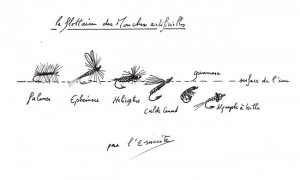 la flottaison des Mouches artificielles
gammare
surface de l'eau
Palmer Ephémère Hélicoptère
Cul de canard
Nymphe à bille
par l'Ermite